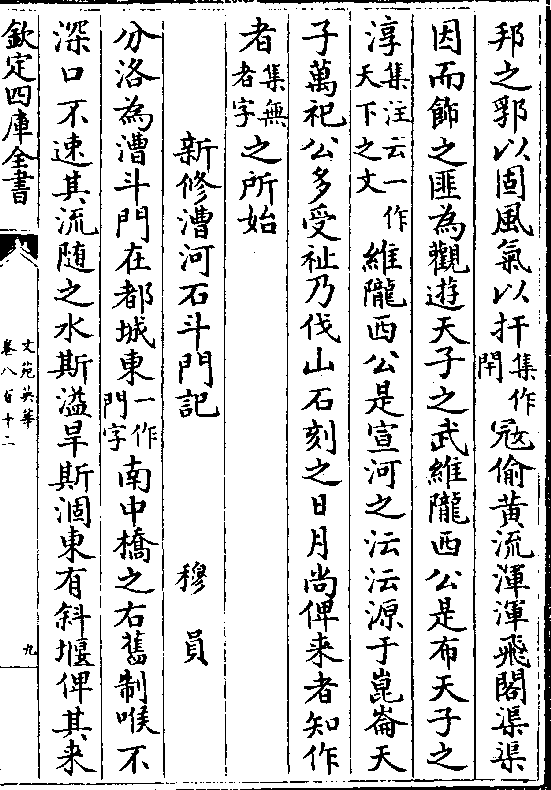 邦之郛以固風氣以扞集作閈冦偷黄流渾渾飛閣渠渠
因而飾之匪為觀遊天子之武維隴西公是布天子之
淳集注云一作天下之文維隴西公是宣河之沄沄源于崑崙天
子萬祀公多受祉乃伐山石刻之日月尚俾来者知作
者集無者字之所始
新修漕河石斗門記 穆員
分洛為漕斗門在都城東一作門字南中橋之右舊制喉不
深口不速其流随之水斯溢旱斯涸東有斜堰俾其来
欽定四庫全書
文苑英華
卷八百十二
九